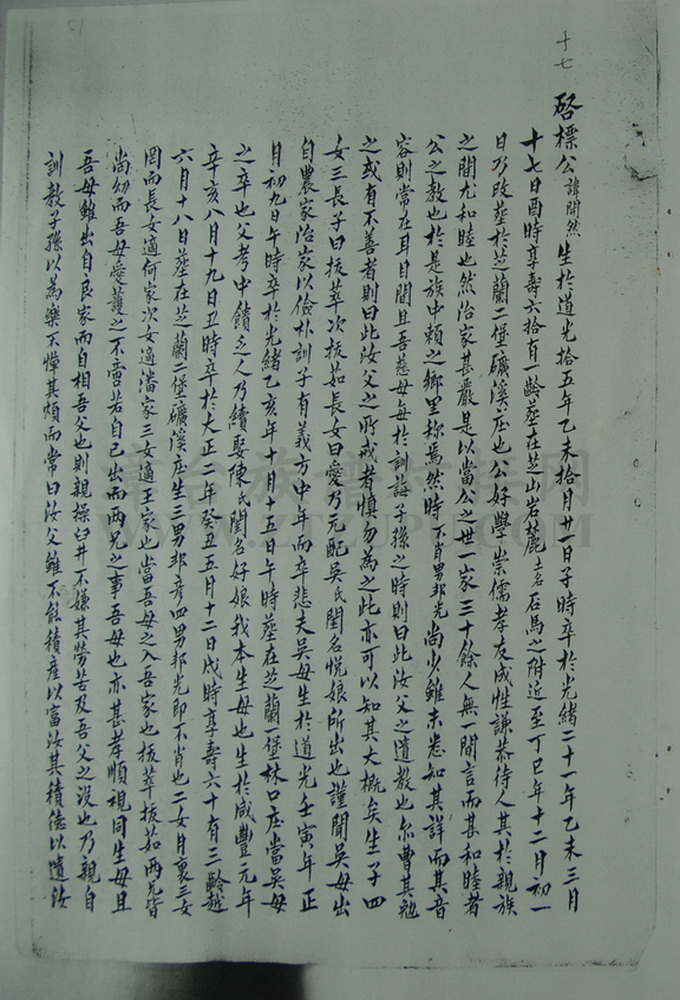 十七
啓標公諱開然生於道光拾五年乙未拾月廿一日子時卒於光緒二十一年乙未三月
十七日酉時享壽六拾有一齡葬在芝山岩麓土名石馬之附近至丁巳年十二月初一
日乃改葬於芝蘭二堡礦溪庄也公好學崇儒孝友成性謙恭待人其於親族
之間尤和睦也然治家甚嚴是以當公之世一家三十餘人無一間言而甚和睦者
公之教也於是族中賴之鄉里称焉然時不肖男邦光尚少雖未悉知其詳而其音
容則常在耳目間且吾慈母每於訓誨子孫之時則曰此汝父之遺教也尔曹其勉
之或有不善者則曰此汝父之所戒者慎勿為之此亦可以知其大概矣生子四
女三長子曰拔萃次拔茹長女曰愛乃元配吳氏閨名悅娘所出也謹聞吳母出
自農家治家以儉朴訓子有義方中年而卒悲夫吳母生於道光壬寅年正
月初九日午時卒於光緒乙亥年十月十五日午時葬在芝蘭一堡林口庄當吳母
之卒也父考中饋乏人乃續娶陳氏閨名好娘我本生母也生於咸豐元年
辛亥八月十九日丑時卒於大正二年癸丑五月十二日戌時享壽六十有三齡越
六月十八日葬在芝蘭二堡礦溪庄生三男邦彥四男邦光即不肖也二女月裏三女
罔而長女適何家次女適潘家三女適王家也當吾母之入吾家也拔萃拔茹兩兄皆
尚幼而吾母愛護之不啻若自己出而兩兄之事吾母也亦甚孝順視同生母且
吾母雖出自良家而自相吾父也則親操臼井不嫌其勞苦及吾父之沒也乃親自
訓教子孫以為樂不憚其煩而常曰汝父雖不能積產以富汝其積德以遺汝